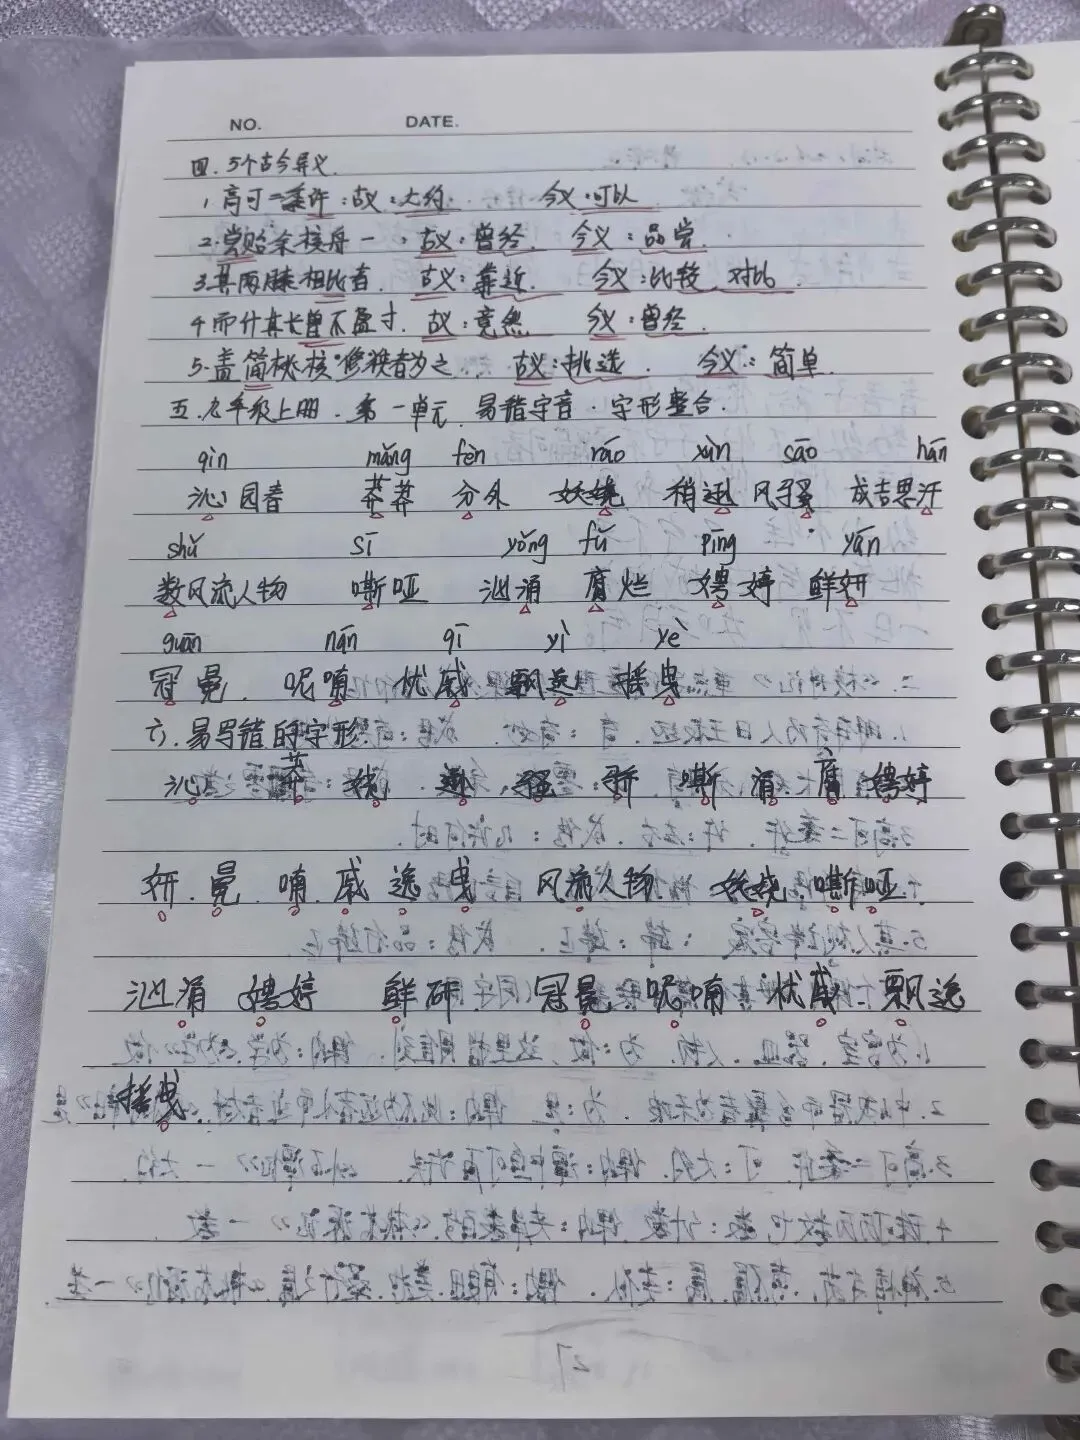 NO. DATE.
四.5个古今异义.
1.高可二黍许:古义:大约. 今义:可以
2.尝贻余核舟一.:古义:曾经. 今义:品尝.
3.其两膝相比者. 古义:靠近. 今义:比较 对比.
4.而计其长曾不盈寸. 古义:竟然 今义:曾经.
5.盖简桃核修狭者为之. 古义:挑选. 今义:简单.
五.九年级上册.第一单元.易错字音.字形整合.
qìn mǎng fèn ráo xùn sāo hán
沁园春 莽莽 分外 妖娆 稍逊 风骚 成吉思汗
shǔ sī yǒng fǔ pīng yán
数风流人物 嘶哑 汹涌 腐烂 娉婷 鲜妍
guān nán qī yì yè
冠冕. 呢喃 忧戚 飘逸 摇曳
六.易写错的字形
沁 莽 娆 逊 骚 嘶 涌 腐 娉婷
妍.冕.喃 戚 逸 曳 风流人物 妖娆.嘶哑.
汹涌 娉婷 鲜研 冠冕.呢喃 忧戚.飘逸
摇曳